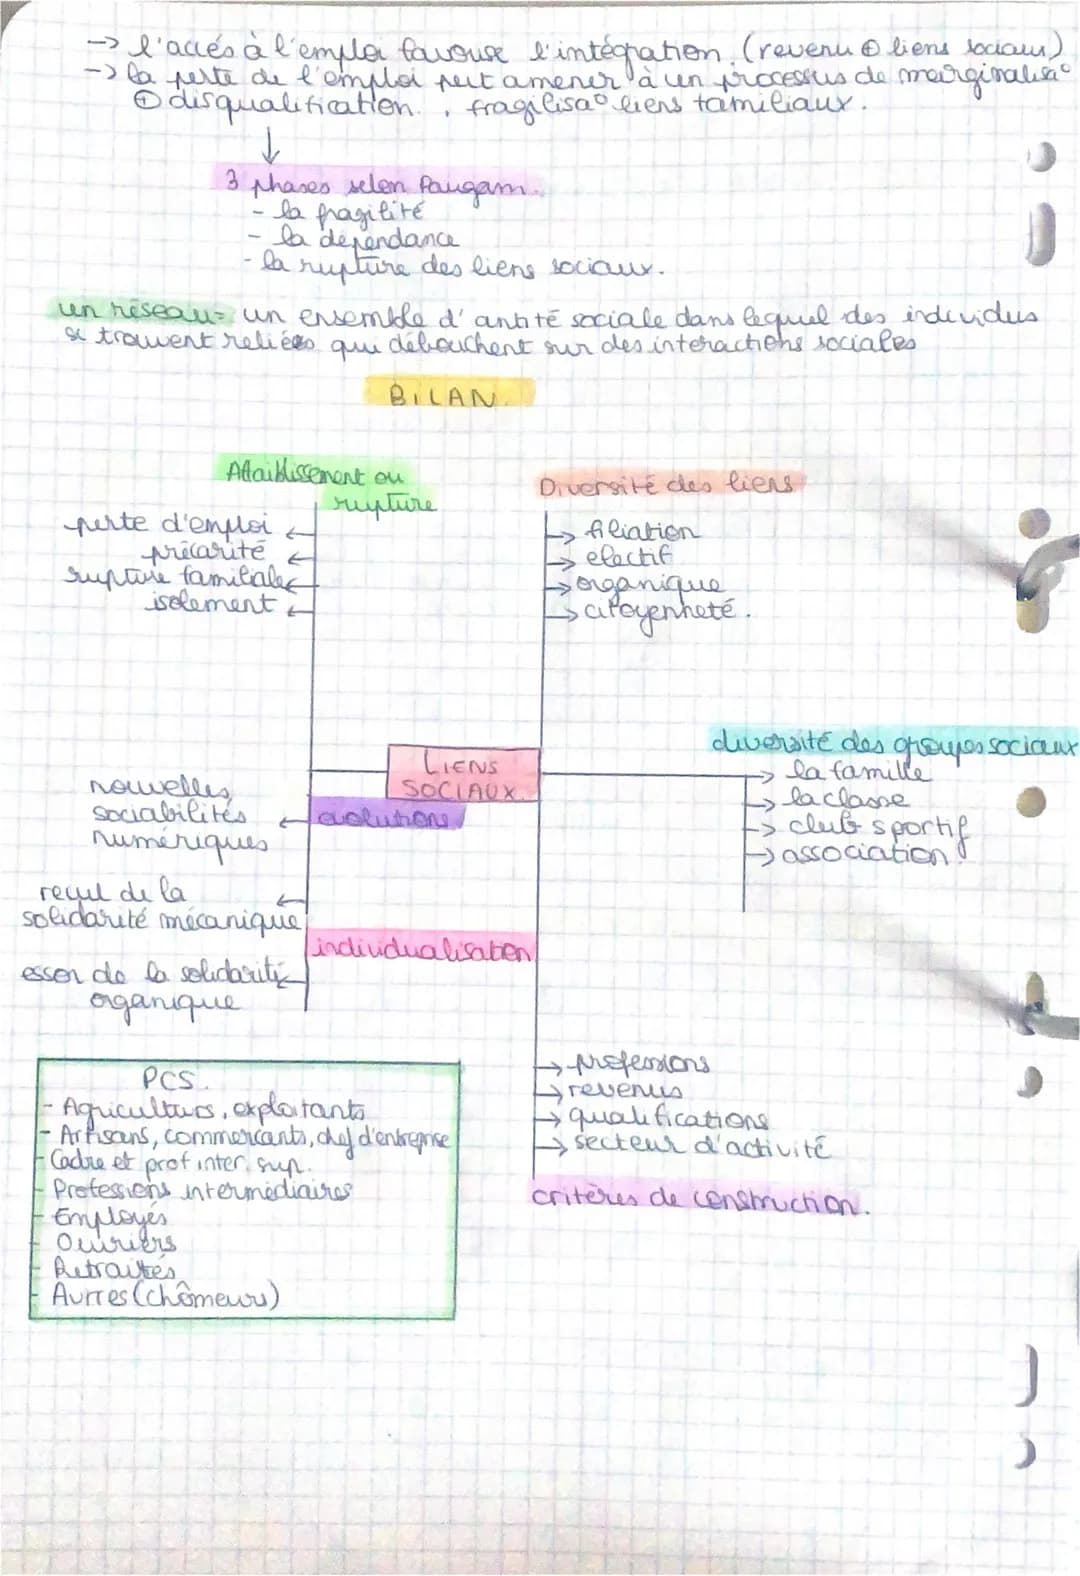 → l'accés à l'emploi favouse l'intégration. (revenu ⊕ liens sociaux)
→ la perte de l'emploi peut amener à un processus de marginalisa°
⊕ disqualification. , fragilisa° liens familiaux.
↓
3 phases selon Paugam.
- la fragilité
- la dépendance
- la rupture des liens sociaux.
un réseau= un ensemble d'antité sociale dans lequel des individus
se trouvent reliées qui débouchent sur des interactions sociales
BILAN.
Affaiblissement ou
rupture
perte d'emploi ←
précarité ←
rupture familiale ←
isolement ←
Diversité des liens
→ filiation
→ electif
→ organique
→ citoyenneté.
LIENS
SOCIAUX.
diversité des groupes sociaux
→ la famille
→ la classe
→ club sportif
→ association.
évolutions
nouvelles
sociabilités ←
numériques
recul de la ←
solidarité mécanique
individualisation
essor de la solidarité ←
organique
→ professions
→ revenus
→ qualifications
→ secteur d'activité
critères de construction.
PCS.
- Agriculturs, exploitants
- Artisans, commercants, chef d'entreprise
- Cadre et prof inter. sup.
- Professions intermédiaires
- Employés
- Ouvriers
- Retraités
- Autres (chômeurs)